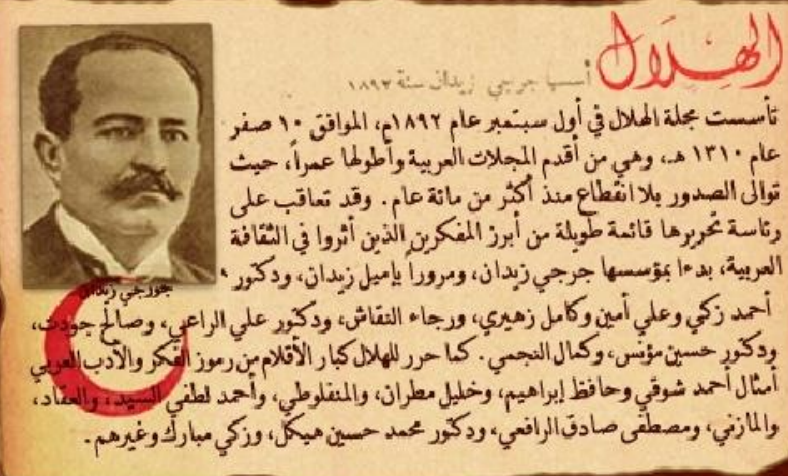 الهلال
أسسها جرجي زيدان سنة ١٨٩٢
تأسست مجلة الهلال في أول سبتمبر عام ١٨٩٢م، الموافق ١٠ صفر
عام ١٣١٠ هـ، وهي من أقدم المجلات العربية وأطولها عمراً، حيث
توالى الصدور بلا انقطاع منذ أكثر من مائة عام. وقد تعاقب على
رئاسة تحريرها قائمة طويلة من أبرز المفكرين الذين أثروا في الثقافة
العربية، بدءا بمؤسسها جرجي زيدان، ومروراً بإميل زيدان، ودكتور
جورجي زيدان
أحمد زكي وعلي أمين وكامل زهيري، ورجاء النقاش، ودكتور علي الراعي، وصالح جودت،
ودكتور حسين مؤنس، وكمال النجمي. كما حرر للهلال كبار الأقلام من رموز الفكر والأدب العربي
أمثال أحمد شوقي وحافظ إبراهيم، وخليل مطران، والمنفلوطي، وأحمد لطفي السيد، والعقاد،
والمازني، ومصطفى صادق الرافعي، ودكتور محمد حسين هيكل، وزكي مبارك وغيرهم.